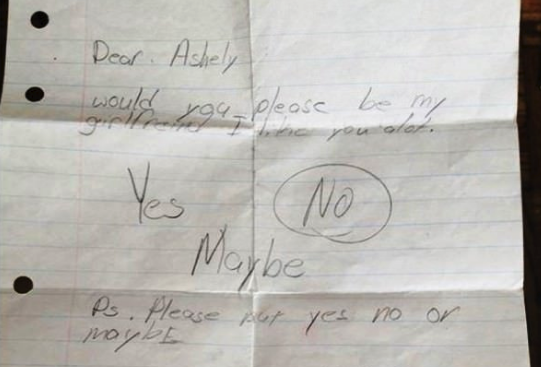 Dear. Ashely
would you please be my
girlfriend I like you alot.
Yes No
Maybe
Ps. Please put yes no or
maybE